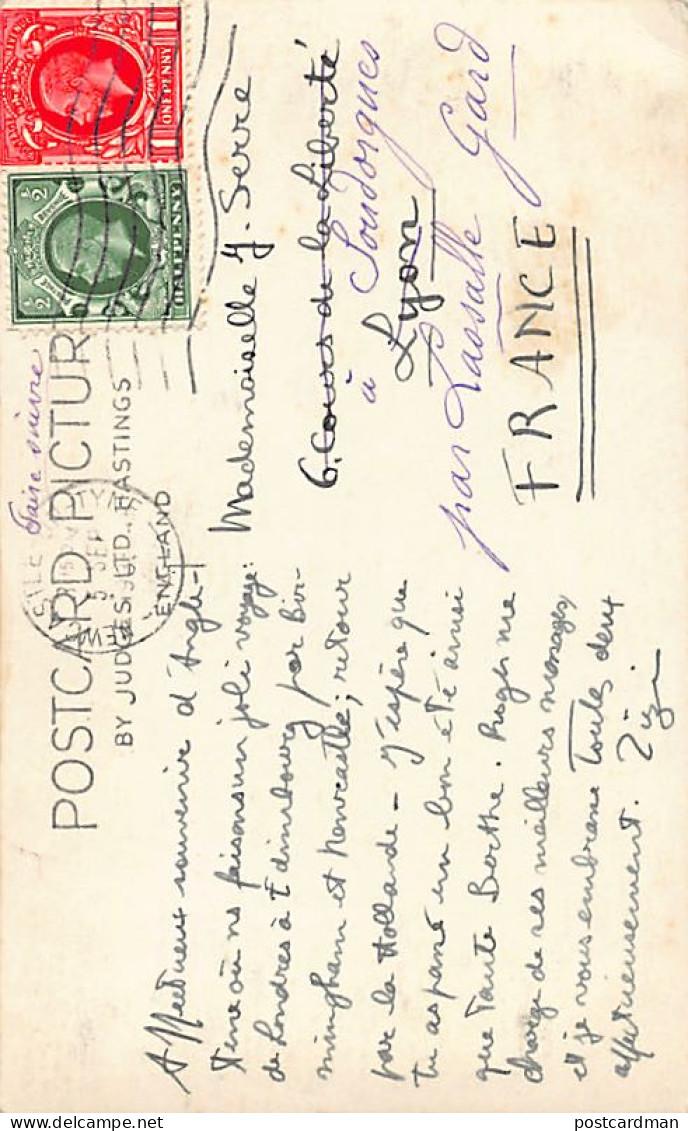 POSTCARD PICTUR
BY JUDGES LTD., HASTINGS
ENGLAND
Faire suivre
ONE PENNY
HALFPENNY
SEP
Affectueux souvenir d'Angle-
terre où ns faisons un joli voyage:
de Londres à Edimbourg par Bir-
mingham et Newcastle; retour
par la Hollande - J'espère que
tu as passé un bon été ainsi
que Tante Berthe. Roger me
charge de ses meilleurs messages
et je vous embrasse toutes deux
affectueusement. Zizi
Mademoiselle J. Serre
6. Cours de la Liberté
à Soudorgues
Lyon
par Lassalle Gard
FRANCE
postcardman